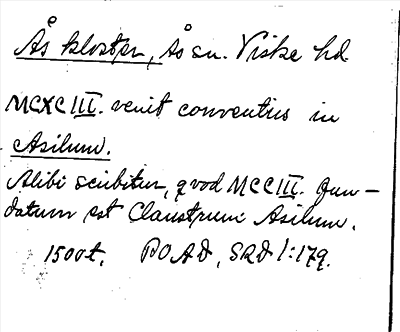 Ås kloster, Ås sn. Viske hd.
MCXCIII. venit conventus in
Asilum.
Alibi scribitur, qvod MCCIII. fun-
datum est Claustrum Asilum.
1500t. SRD 1:179.